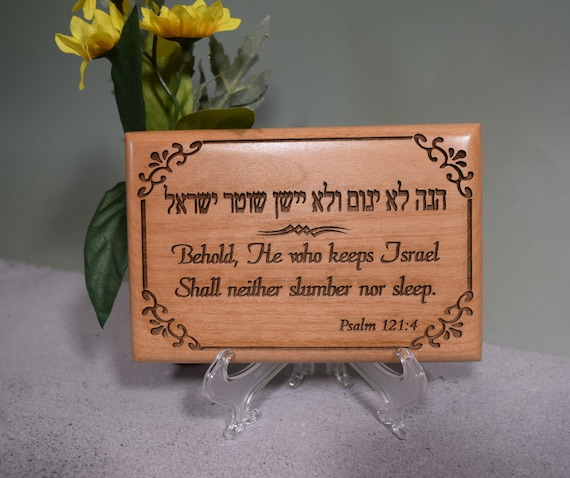 הנה לא ינום ולא יישן שוטר ישראל
Behold, He who keeps Israel
Shall neither slumber nor sleep.
Psalm 121:4